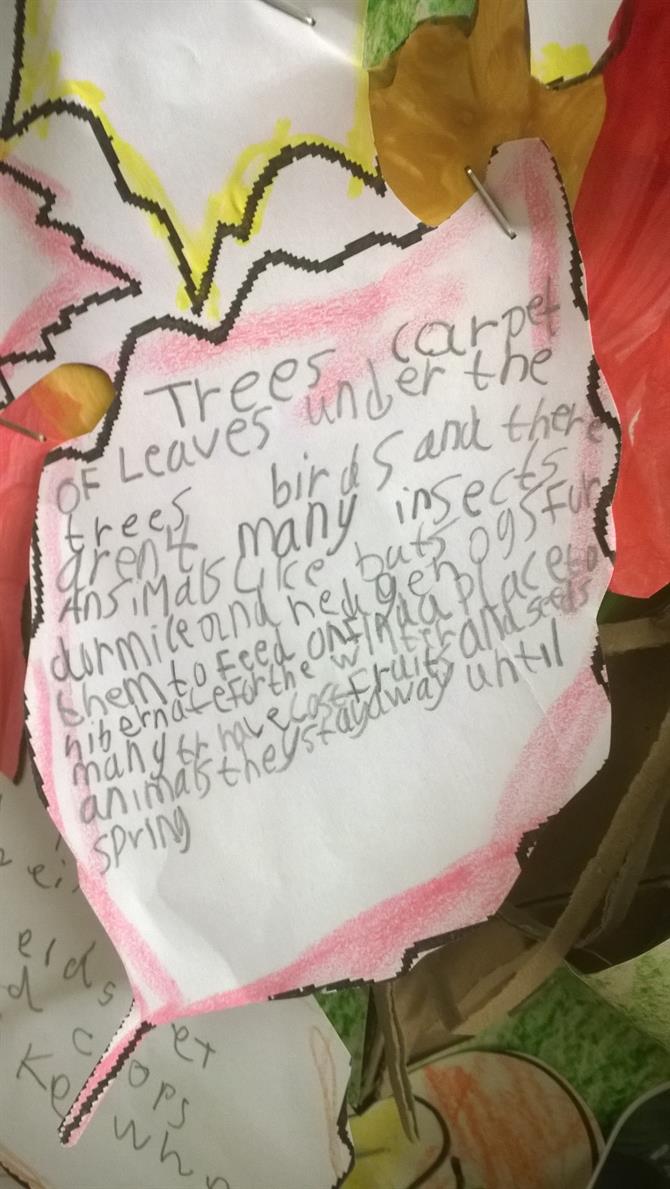 Trees carpet
OF Leaves under the
trees birds and there
aren't many insects
Ansimals Like bats ogs fur
dormice and hedgeh
them to Feed on Find a place to
hibernate for the winter and seeds
many tr have lost fruits
animals they stay away until
spring
elds
d et
crops
Ke
whe